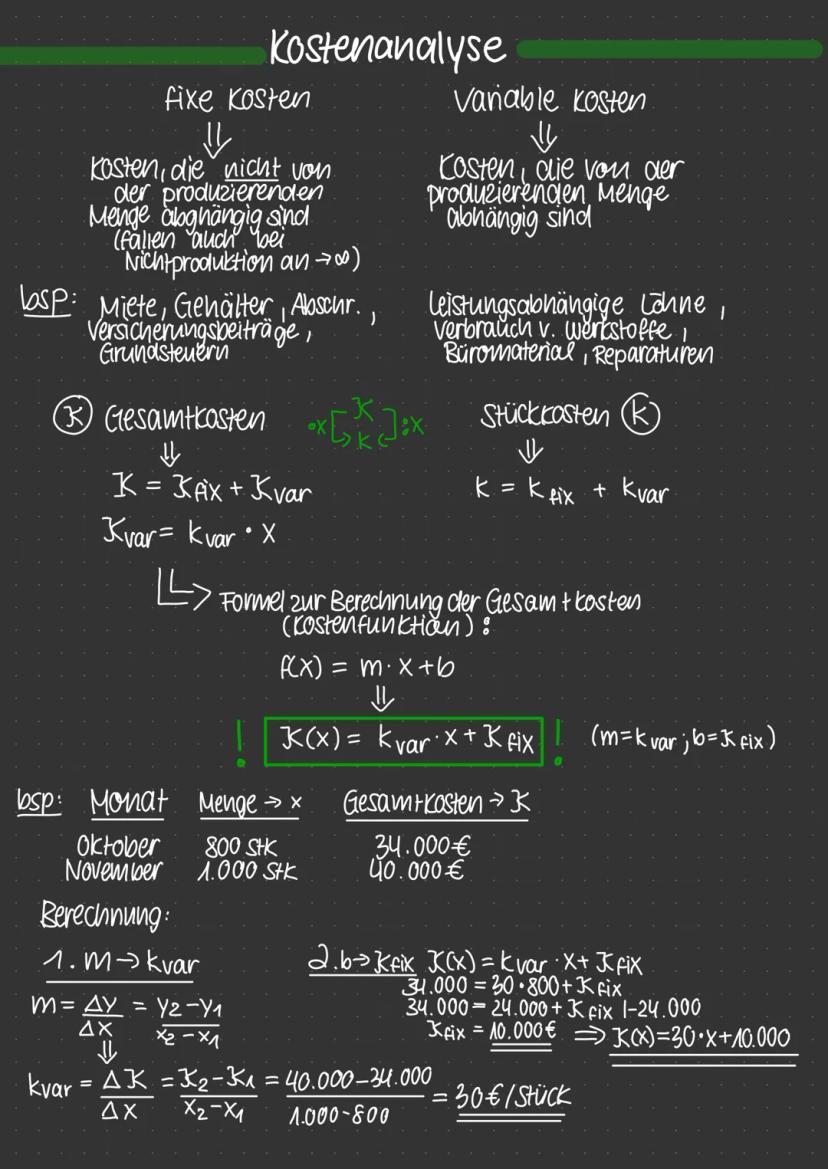 Kostenanalyse
fixe Kosten
Variable Kosten
⇓
⇓
Kosten, die nicht von
der produzierenden
Menge abghängig sind
(fallen auch bei
Nichtproduktion an → ∞)
Kosten, die von der
produzierenden Menge
abhängig sind
bsp: Miete, Gehälter, Abschr.,
Versicherungsbeiträge,
Grundsteuern
Leistungsabhängige Löhne,
Verbrauch v. Werkstoffe,
Büromaterial, Reparaturen
K Gesamtkosten
·x [ K ] :x
k
Stückkosten k
⇓
⇓
K = Kfix + Kvar
k = kfix + kvar
Kvar = kvar · x
↳ Formel zur Berechnung der Gesamtkosten
(Kostenfunktion):
f(x) = m · x + b
⇓
! K(x) = kvar · x + Kfix ! (m=kvar; b=Kfix)
bsp: Monat Menge → x Gesamtkosten → K
Oktober 800 Stk 34.000€
November 1.000 Stk 40.000€
Berechnung:
1. m → kvar
m = Δy/Δx = y2-y1/x2-x1
⇓
kvar = ΔK/Δx = K2-K1/x2-x1 = 40.000-34.000/1.000-800 = 30€/Stück
2. b → Kfix K(x) = kvar · x + Kfix
34.000 = 30·800 + Kfix
34.000 = 24.000 + Kfix |-24.000
Kfix = 10.000€ ⇒ K(x)=30·x+10.000